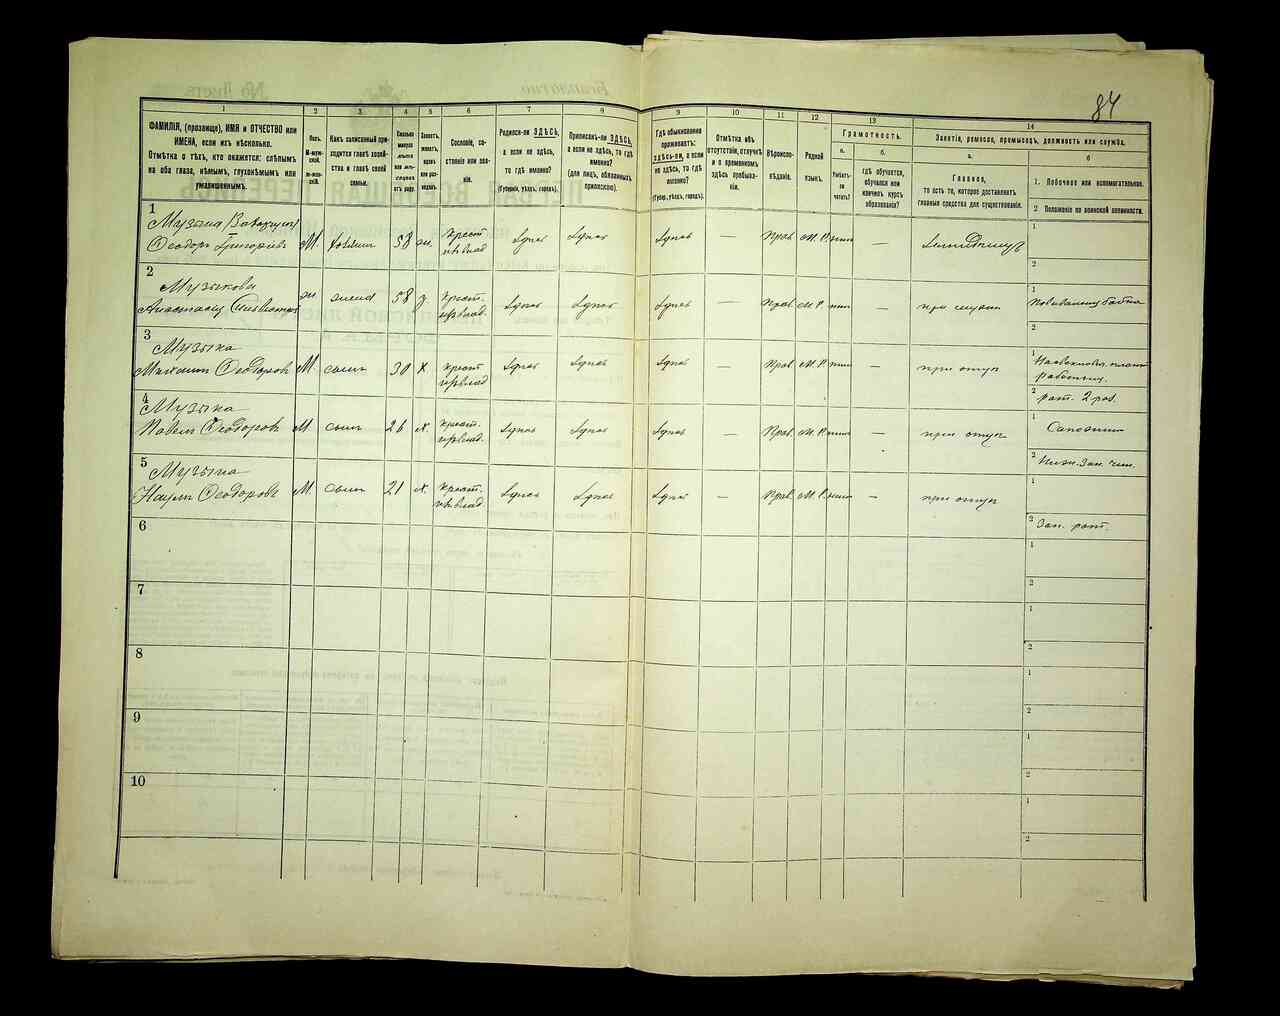 84
1
2
3
4
5
6
7
8
9
10
11
12
13
14
ФАМИЛІЯ, (прозвище), ИМЯ и ОТЧЕСТВО или
ИМЕНА, если ихъ нѣсколько.
Отмѣтка о тѣхъ, кто окажется: слѣпымъ
на оба глаза, нѣмымъ, глухонѣмымъ или
умалишеннымъ.
Полъ.
М-муж-
ской.
Ж-жен-
скій.
Какъ записанный при-
ходится главѣ хозяй-
ства и главѣ своей
семьи.
Сколько
минуло
лѣтъ
или мѣ-
сяцевъ
отъ роду.
Холостъ,
женатъ,
вдовъ
или раз-
веденъ.
Сословіе, со-
стояніе или зва-
ніе.
Родился-ли ЗДѢСЬ,
а если не здѣсь,
то гдѣ именно?
(Губернія, уѣздъ, городъ).
Приписанъ-ли ЗДѢСЬ,
а если не здѣсь, то гдѣ
именно?
(для лицъ, обязанныхъ
припискою).
Гдѣ обыкновенно
проживаетъ:
ЗДѢСЬ-ли, а если
не здѣсь, то гдѣ
именно?
(Губер., уѣздъ, городъ).
Отмѣтка объ
отсутствіи, отлучкѣ
и о временномъ
здѣсь пребыва-
ніи.
Вѣроиспо-
вѣданіе.
Родной
языкъ.
Грамотность.
а.
б.
Умѣетъ-
ли
читать?
гдѣ обучается,
обучался или
кончилъ курсъ
образованія?
Занятія, ремесло, промыселъ, должность или служба.
а.
Главное,
то есть то, которое доставляетъ
главныя средства для существованія.
б
1. Побочное или вспомогательное.
2 Положеніе по воинской повинности.
1
Музыка
Феодоръ Григорьевъ
М.
хозяинъ
58
жн.
крест.
здѣсь
здѣсь
здѣсь
—
Прав.
М. Р.
—
1
2
2
Музыкова
Анастасія
жн
жена
58
з.
крест.
здѣсь
здѣсь
здѣсь
—
Прав.
М. Р.
—
при мужѣ
1
2
3
Музыка
Михаилъ Феодоровъ
М
сынъ
30
х
крест
здѣсь
здѣсь
здѣсь
—
Прав
М. Р.
—
при отцѣ
1
2
рат. 2 раз.
4
Музыка
Павелъ Феодоровъ
М
сынъ
26
х.
крест.
здѣсь
здѣсь
здѣсь
—
Прав.
М. Р.
—
при отцѣ
1
Сапожникъ
2
5
Музыка
Наумъ Феодоровъ
М.
сынъ
21
х.
крест.
здѣсь
здѣсь
здѣсь
—
Прав.
М. Р.
—
при отцѣ
1
2
6
1
2
7
1
2
8
1
2
9
1
2
10
1
2